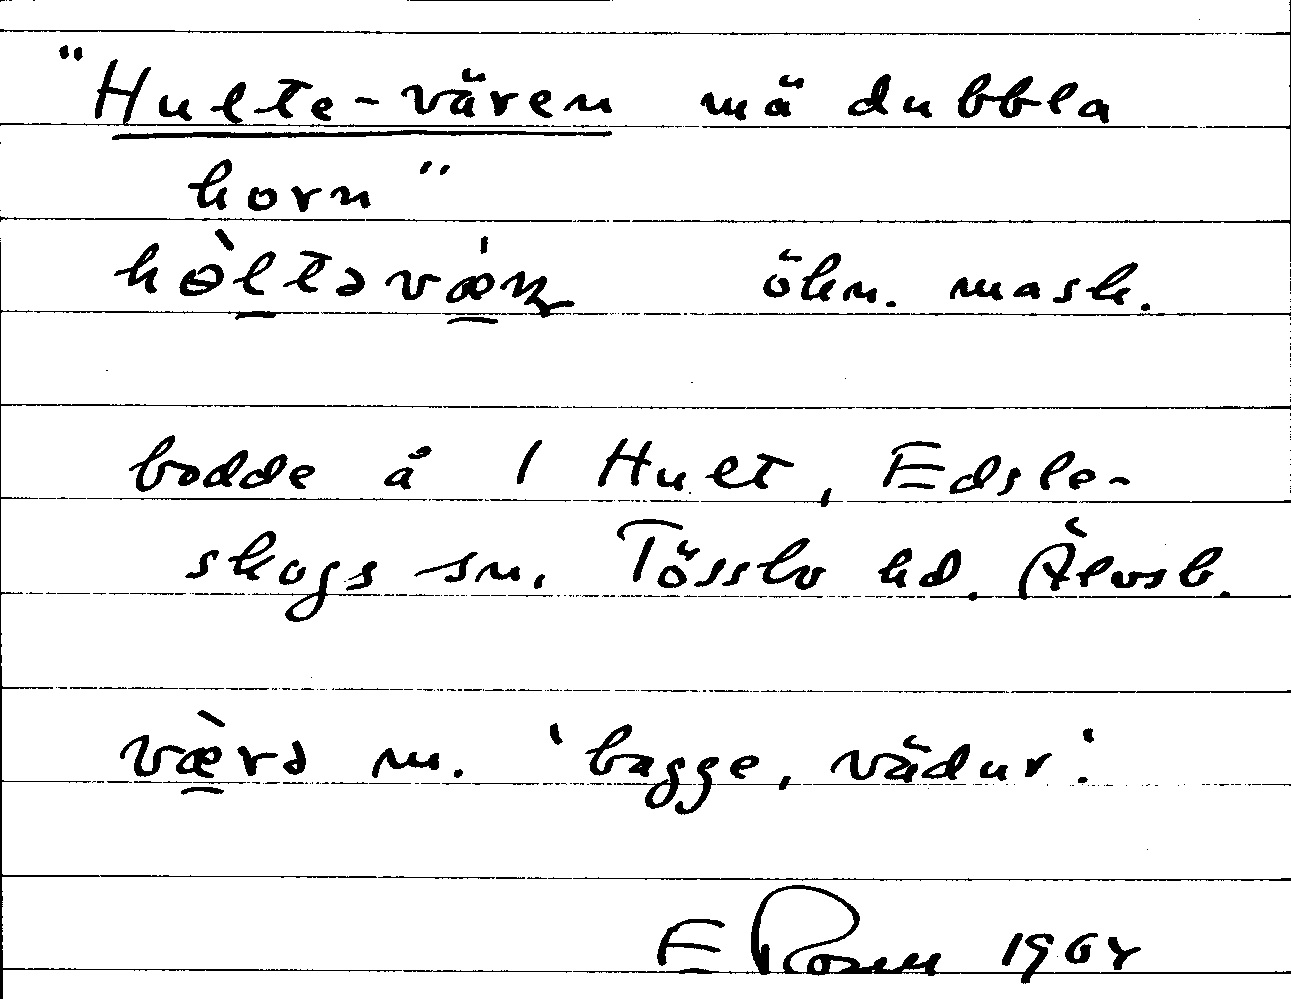 "Hulte-vären mä dubbla
horn"
hòltəvæ̀ṇ ökn. mask.
bodde å 1 Hult, Edsle-
skogs sn. Tössbo hd. Älvsb.
væ̀rə m. 'bagge, vädur'.
E Rosen 1964